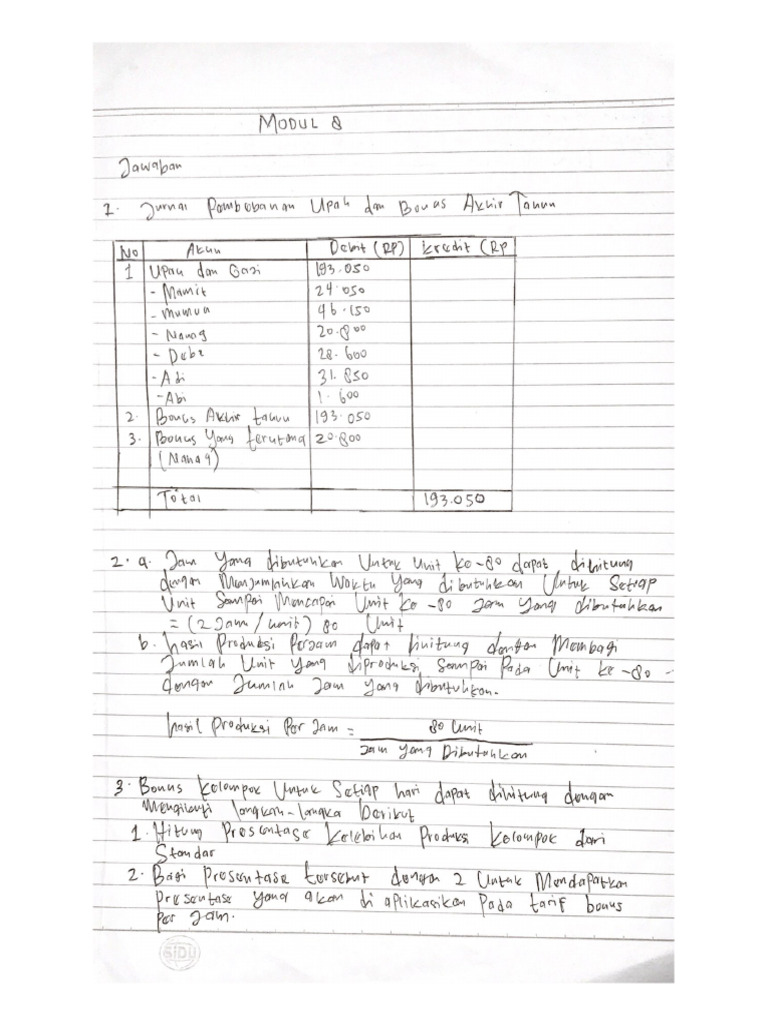 MODUL 8
Jawaban
1. Jurnal Pembebanan Upah dan Bonus Akhir Tahun
No Akun Debit (RP) Kredit (RP
1 Upah dan Gaji 193.050
- Mamit 24.050
- Mumun 46.150
- Nanag 20.800
- Debi 28.600
- Adi 31.850
- Abi 1.600
2. Bonus Akhir tahun 193.050
3. Bonus Yang terutang 20.800
(Nanag)
Total 193.050
2. a. Jam Yang dibutuhkan Untuk Unit ke-80 dapat dihitung
dengan Menjumlahkan Waktu Yang dibutuhkan Untuk Setiap
Unit Sampai Mencapai Unit ke-80 Jam Yang dibutuhkan
= (2 Jam / Unit) 80 Unit
b. hasil Produksi Perjam dapat dihitung dengan Membagi
Jumlah Unit Yang diproduksi Sampai Pada Unit ke-80 -
dengan Jumlah Jam Yang dibutuhkan.
hasil Produksi Per Jam = 80 Unit
Jam Yang Dibutuhkan
3. Bonus Kelompok Untuk Setiap hari dapat dihitung dengan
Mengikuti langkah-langka berikut
1. Hitung Presentase Kelebihan Produksi Kelompok dari
Standar
2. Bagi Presentase tersebut dengan 2 Untuk Mendapatkan
Presentase Yang akan di aplikasikan Pada tarif bonus
Per Jam.
SIDU